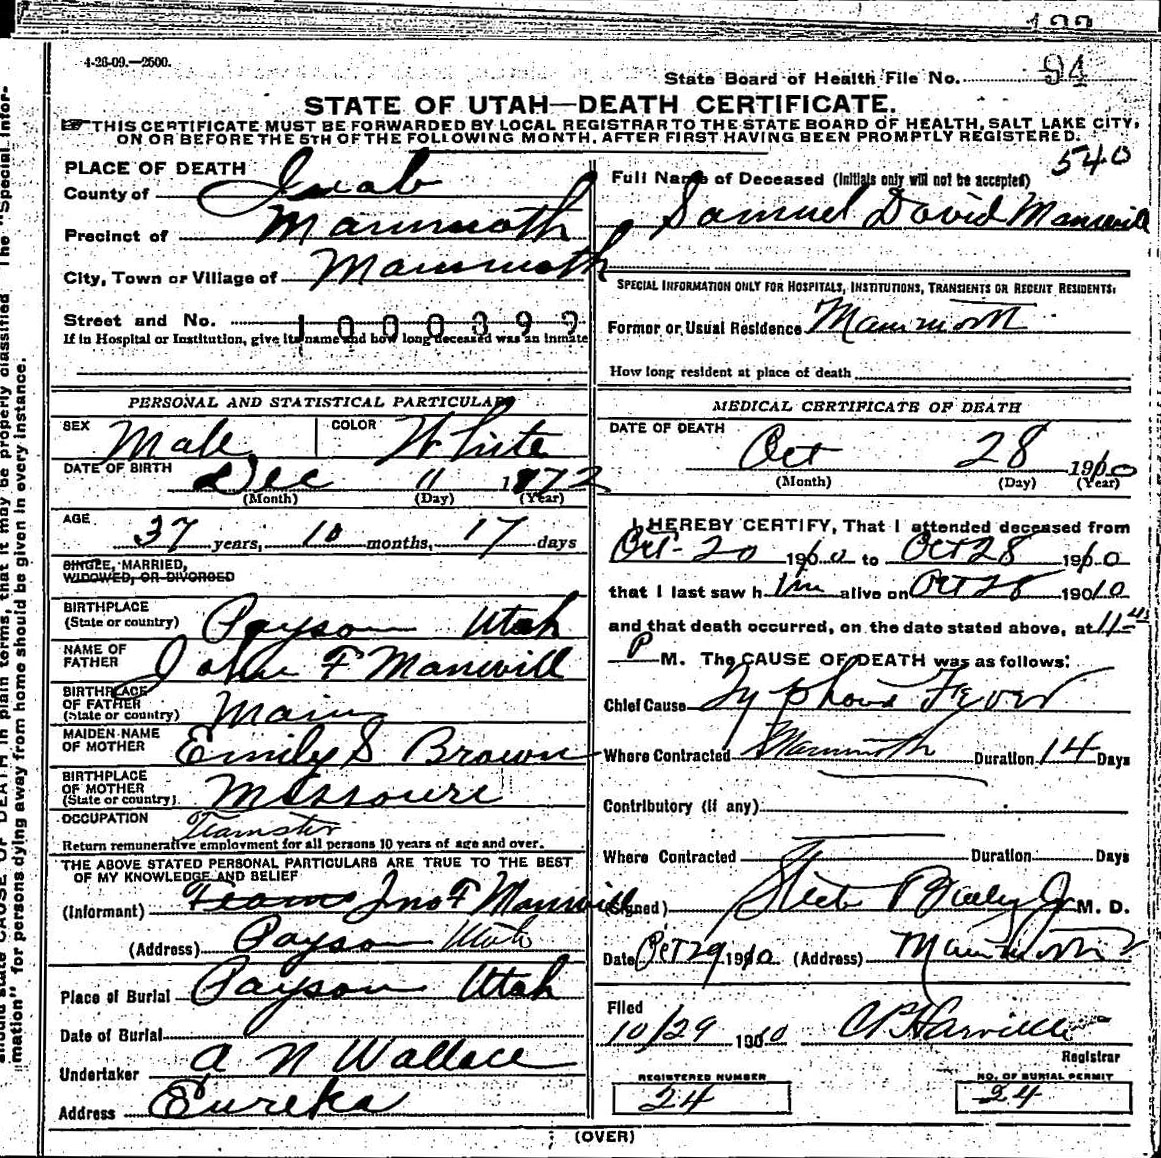 4-26-09.—2500.
State Board of Health File No. 94
STATE OF UTAH—DEATH CERTIFICATE.
THIS CERTIFICATE MUST BE FORWARDED BY LOCAL REGISTRAR TO THE STATE BOARD OF HEALTH, SALT LAKE CITY,
ON OR BEFORE THE 5TH OF THE FOLLOWING MONTH, AFTER FIRST HAVING BEEN PROMPTLY REGISTERED.
540
PLACE OF DEATH
County of Juab
Precinct of Mammoth
City, Town or Village of Mammoth
Street and No.
If in Hospital or Institution, give its name and how long deceased was an inmate
Full Name of Deceased (Initials only will not be accepted)
Samuel David Manwill
SPECIAL INFORMATION ONLY FOR HOSPITALS, INSTITUTIONS, TRANSIENTS OR RECENT RESIDENTS:
Former or Usual Residence Mammoth
How long resident at place of death
PERSONAL AND STATISTICAL PARTICULARS
SEX Male COLOR White
DATE OF BIRTH
Dec 11 1872
(Month) (Day) (Year)
AGE
37 years, 10 months, 17 days
SINGLE, MARRIED,
WIDOWED, OR DIVORCED
BIRTHPLACE
(State or country) Payson Utah
NAME OF
FATHER John F Manwill
BIRTHPLACE
OF FATHER
(State or country) Main
MAIDEN NAME
OF MOTHER Emily S Brown
BIRTHPLACE
OF MOTHER
(State or country) Missouri
OCCUPATION Teamster
Return remunerative employment for all persons 10 years of age and over.
THE ABOVE STATED PERSONAL PARTICULARS ARE TRUE TO THE BEST
OF MY KNOWLEDGE AND BELIEF
(Informant) Jno F Manwill
(Address) Payson Utah
Place of Burial Payson Utah
Date of Burial
Undertaker A N Wallace
Address Eureka
MEDICAL CERTIFICATE OF DEATH
DATE OF DEATH
Oct 28 1910
(Month) (Day) (Year)
I HEREBY CERTIFY, That I attended deceased from
Oct 20 1910 to Oct 28 1910
that I last saw him alive on Oct 28 1910
and that death occurred, on the date stated above, at 11-
P M. The CAUSE OF DEATH was as follows:
Chief Cause Typhoid Fever
Where Contracted Mammoth Duration 14 Days
Contributory (if any)
Where Contracted Duration Days
(Signed) Steele Bailey Jr M. D.
Date Oct 29 1910 (Address) Mammoth
Filed
10/29 1910
Registrar
REGISTERED NUMBER
24
NO. OF BURIAL PERMIT
24
(OVER)
mation" for persons dying away from home should be given in every instance.